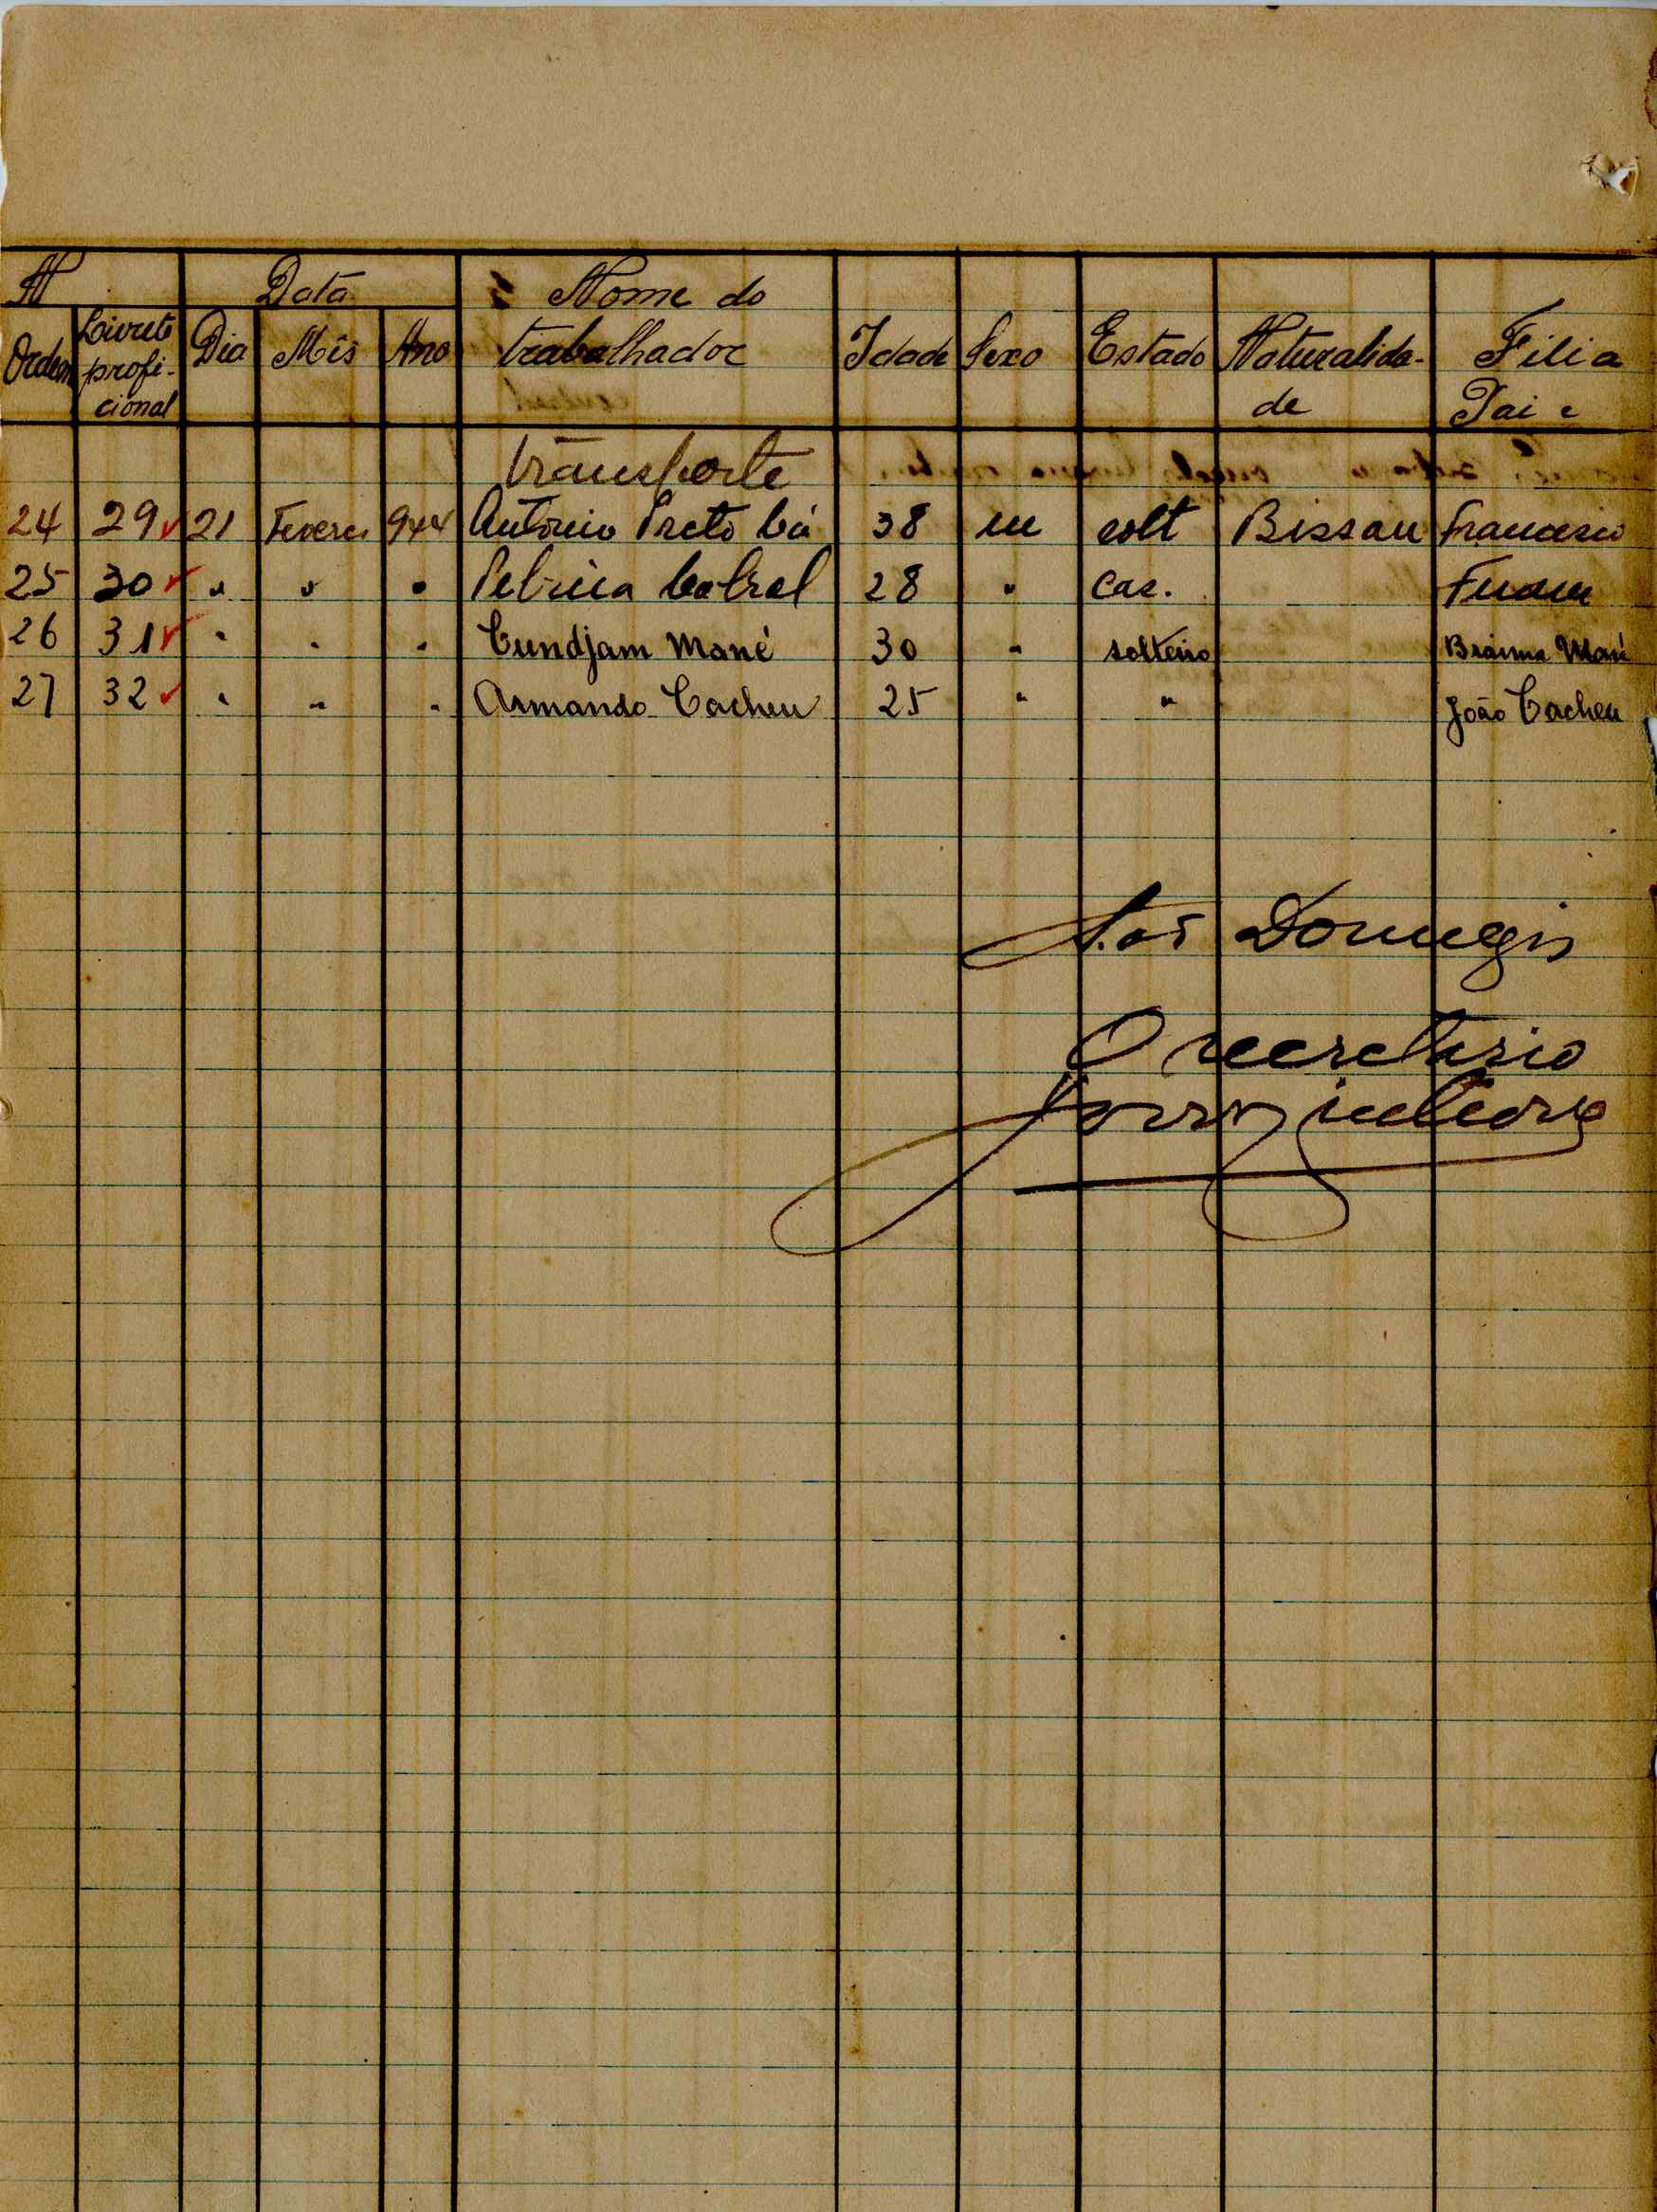 Nº Data Nome do
Ordem Livrete profi-cional Dia Mês Ano trabalhador Idade Sexo Estado Naturalida-de Filia
Pai e
transporte
24 29 21 944 António Preto Cá 38 m solt Bissau Francisco
25 30 " " " Cabral 28 " Cas.
26 31 " " " Cundjam Mané 30 " solteiro Braima Mané
27 32 " " " Armando Cacheu 25 " " João Cacheu
O secretário